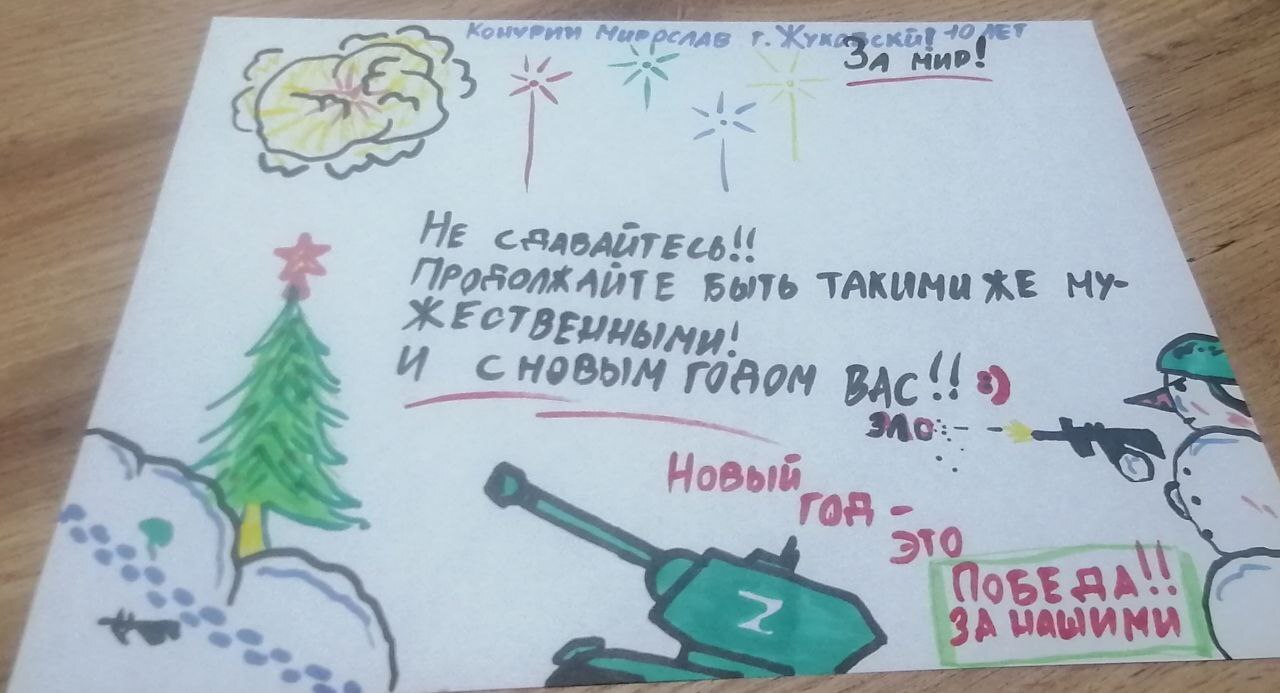 Конурин Мирослав г. Жуковский 10 лет
За мир!
Не сдавайтесь!!
Продолжайте быть такими же му-
жественными!
И с новым годом вас!! :)
зло
Новый
год -
это
Победа!!
за нашими
Z